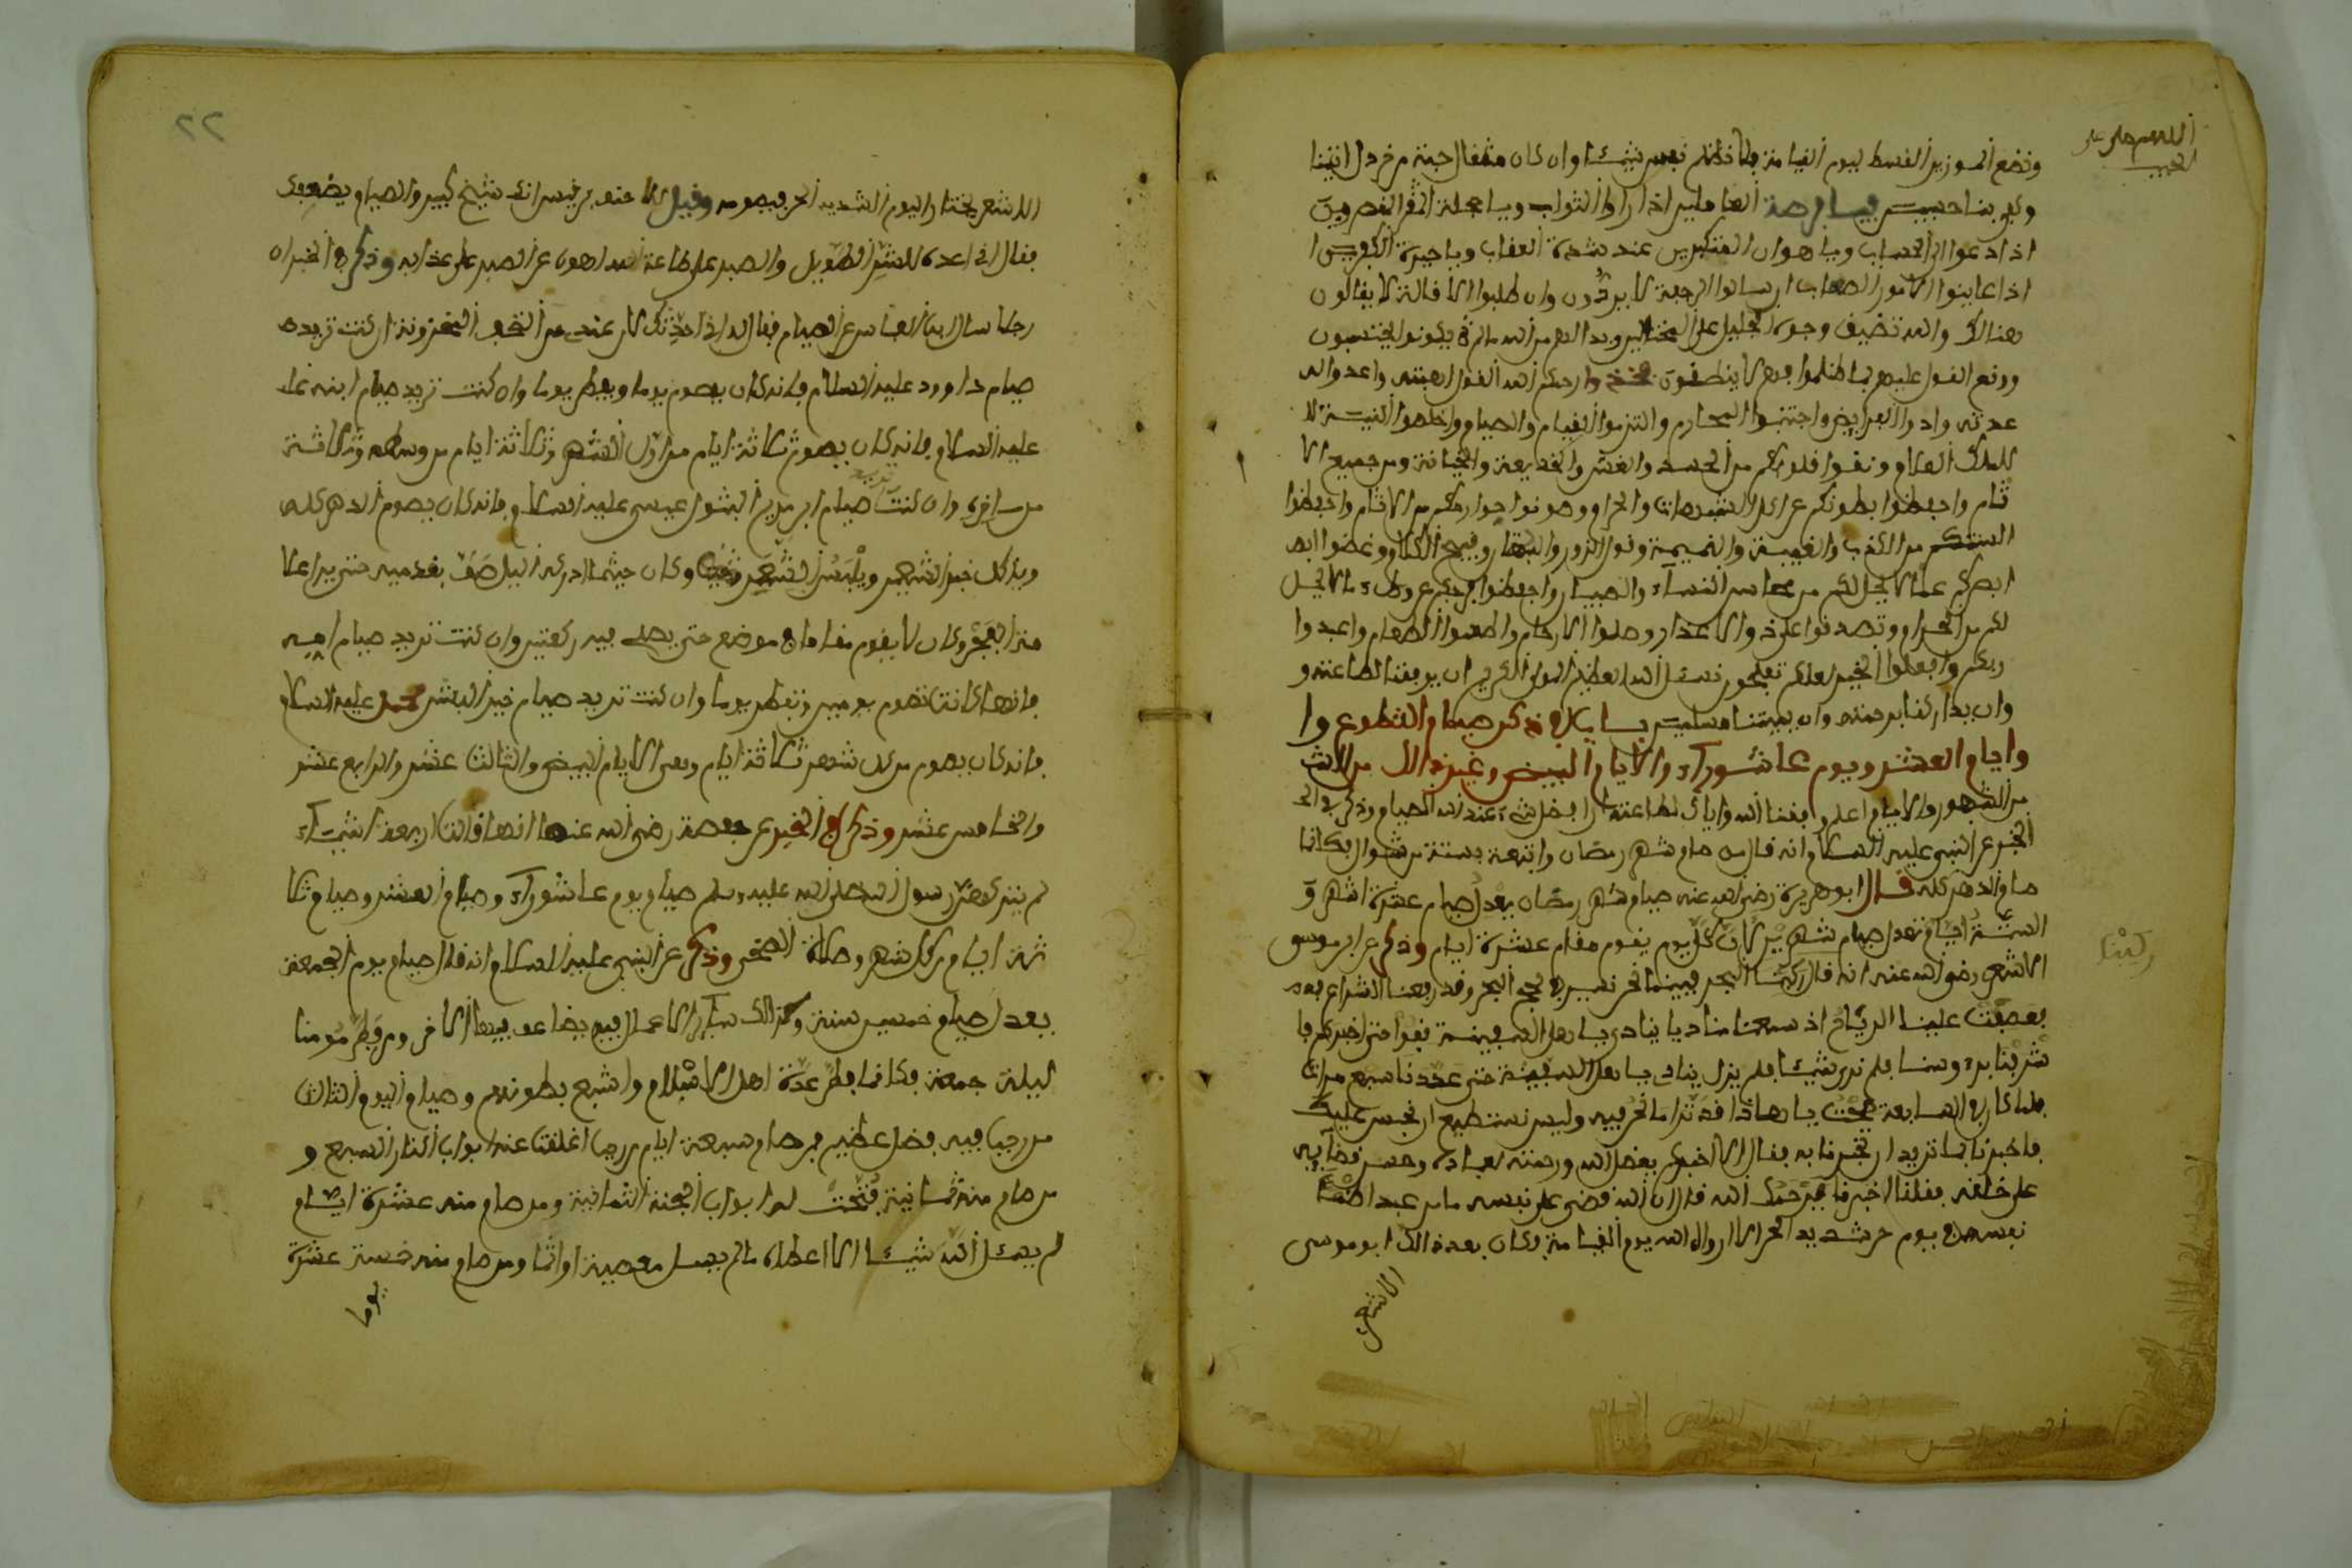 اللهم صل على
الحبيب
ونضع الموزين القسط ليوم القيامة فلا تظلم نفس شيئا وان كان مثقال حبة من خردل اتينا
وكفى بنا حسبين فيا فرحة العاملين اذا راوا الثواب ويا خجلة المقصرين
اذا دعوا الى الحساب ويا هوان المتكبرين عند شدة العقاب ويا حيرة
اذا عاينوا الامور الصعاب ان سالوا الرجعة لا يردون وان طلبوا الاقالة لا يقالون
هنالك والله تضيق وجوه وبدا لهم من الله ما لم يكونوا يحتسبون
ووقع القول عليهم بما ظلموا فهم لا ينطقون فخذوا رحمكم الله واعدوا له
عدته وادوا الفرايض واجتنبوا المحارم والتزموا القيام والصيام واخلصوا النية لله
للملك العلام ونقوا قلوبكم من الحسد والغش والخديعة والخيانة ومن جميع الا
ثام واحفظوا بطونكم عن اكل الشبهات والحرام وصونوا جوارحكم من الاثام واحفظوا
السنتكم من الكذب والغيبة والنميمة وقول الزور والبهتان وقبيح الكلام وغضوا ابصا
ابصركم عما لا يحل لكم من محاسن النساء والصبيان واحفظوا فروجكم عن وطء ما لا يحل
لكم من الحرام وتصدقوا على ذوي الاعذار وصلوا الارحام واطعموا الطعام واعبدوا
ربكم وافعلوا الخير لعلكم تفلحون نسئل الله العظيم المولى الكريم ان يوفقنا لطاعته و
وان يداركنا برحمته وان يميتنا مسلمين باب في ذكر صيام التطوع وا
وايام العشر ويوم عاشوراء والايام البيض وغير ذالك من الاشهر
من الشهور والايام اعلم وفقنا الله واياك لطاعته ان افضل شيء عند الله الصيام وذكر في الخ
الخبر عن النبي عليه السلام انه قال من صام شهر رمضان واتبعه بستة من شوال فكانما
صام الدهر كله قال ابو هريرة رضي الله عنه صيام شهر رمضان يعدل صيام عشرة اشهر و
الستة ايام تعدل صيام شهرين كان كل يوم يقوم مقام عشرة ايام وذكر عن ابي موسى
الاشعري رضي الله عنه انه قال ركبنا البحر فبينما نحن نسير في لجج البحر وقد رفعنا الشراع
ركبنا
فعصفت علينا الرياح اذ سمعنا مناديا ينادي يا اهل السفينة قفوا حتى اخبركم فا
شربنا يمنة وسنا فلم نرى شيئا فلم يزل ينادي يا اهل السفينة حتى عددنا سبع مرات
فلما كان في السابعة قمت يا هاذا قد ترا ما نحن فيه وليس نستطيع ان نحبس عليك
فاخبرنا بما تريد ان تخبرنا به فقال الا اخبركم بفضل الله ورحمته لعباده وحسن قضايه
على خلقه فقلنا اخبرنا يرحمك الله قال ان الله قضى على نفسه ما من عبد اظما
نفسه في يوم حر شديد الحر الا ارواه الله يوم القيامة وكان بعد ذالك ابو موسى
الاشعري
٢٢
الاشعري يختار اليوم الشديد الحر فيصومه وقيل للاحنف بن قيس انك شيخ كبير والصيام يضعفك
فقال اني اعده للسفر الطويل والصبر على طاعة الله اهون من الصبر على عذابه وذكر في الخبر ان
رجلا سال ابن العباس عن الصيام فقال له اني احدثك كان عندي من التحف المخزونة ان كنت تريد
صيام داوود عليه السلام فانه كان يصوم يوما ويفطر يوما وان كنت تريد صيام ابنه
عليه السلام فانه كان يصوم ثلاثة ايام من اول الشهر وثلاثة ايام من وسطه وثلاثة
من اخره وان كنت تريد صيام ابن مريم البتول عيسى عليه السلام فانه كان يصوم الدهر كله
وياكل خبز الشعير ويلبس الشعر وكان حيثما ادركه اليل صف بقدميه حتى يرا علا
متى الفجر وكان لا يقوم مقاما في موضع حتى يصلي فيه ركعتين وان كنت تريد صيام امه
فانها كانت تصوم يومين وتفطر يوما وان كنت تريد صيام خير البشر محمد عليه السلام
فانه كان يصوم من كل شهر ثلاثة ايام وهي الايام البيض والثالث عشر والرابع عشر
والخامس عشر وذكر في الخبر عن حفصة رضي الله عنها انها قالت اربعة اشياء
لم يتركهن رسول الله صلى الله عليه وسلم صيام يوم عاشوراء وصيام العشر وصيام ثلا
ثة ايام من كل شهر وصلاة الضحى وذكر عن النبي عليه السلام انه قال صيام يوم الجمعة
يعدل صيام خمسين سنة وكذالك ساير الاعمال فيه يضاعف فيها الاجر ومن فطر مومنا
ليلة جمعة فكانما فطر عدة اهل الاسلام واشبع بطونهم وصيام اليوم الثالث
من رجب فيه فضل عظيم من صام سبعة ايام من رجب اغلقت عنه ابواب النار السبع و
من صام منه ثمانية فتحت له ابواب الجنة الثمانية ومن صام منه عشرة ايام
لم يسئل الله شيئا الا اعطاه ما لم يسل معصية او اثما ومن صام منه خمسة عشرة
يوما